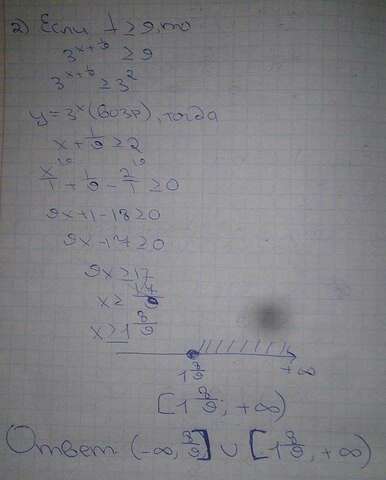 2) Если t ≥ 9, то
3^{x+1/9} ≥ 9
3^{x+1/9} ≥ 3^2
y=3^x (возр), тогда
x + 1/9 ≥ 2
x/1 + 1/9 - 2/1 ≥ 0
9x+1-18≥0
9x-17≥0
9x ≥ 17
x ≥ 17/9
x ≥ 1 8/9
1 8/9 +∞
[1 8/9; +∞)
Ответ (-∞, 8/9] ∪ [1 8/9; +∞)